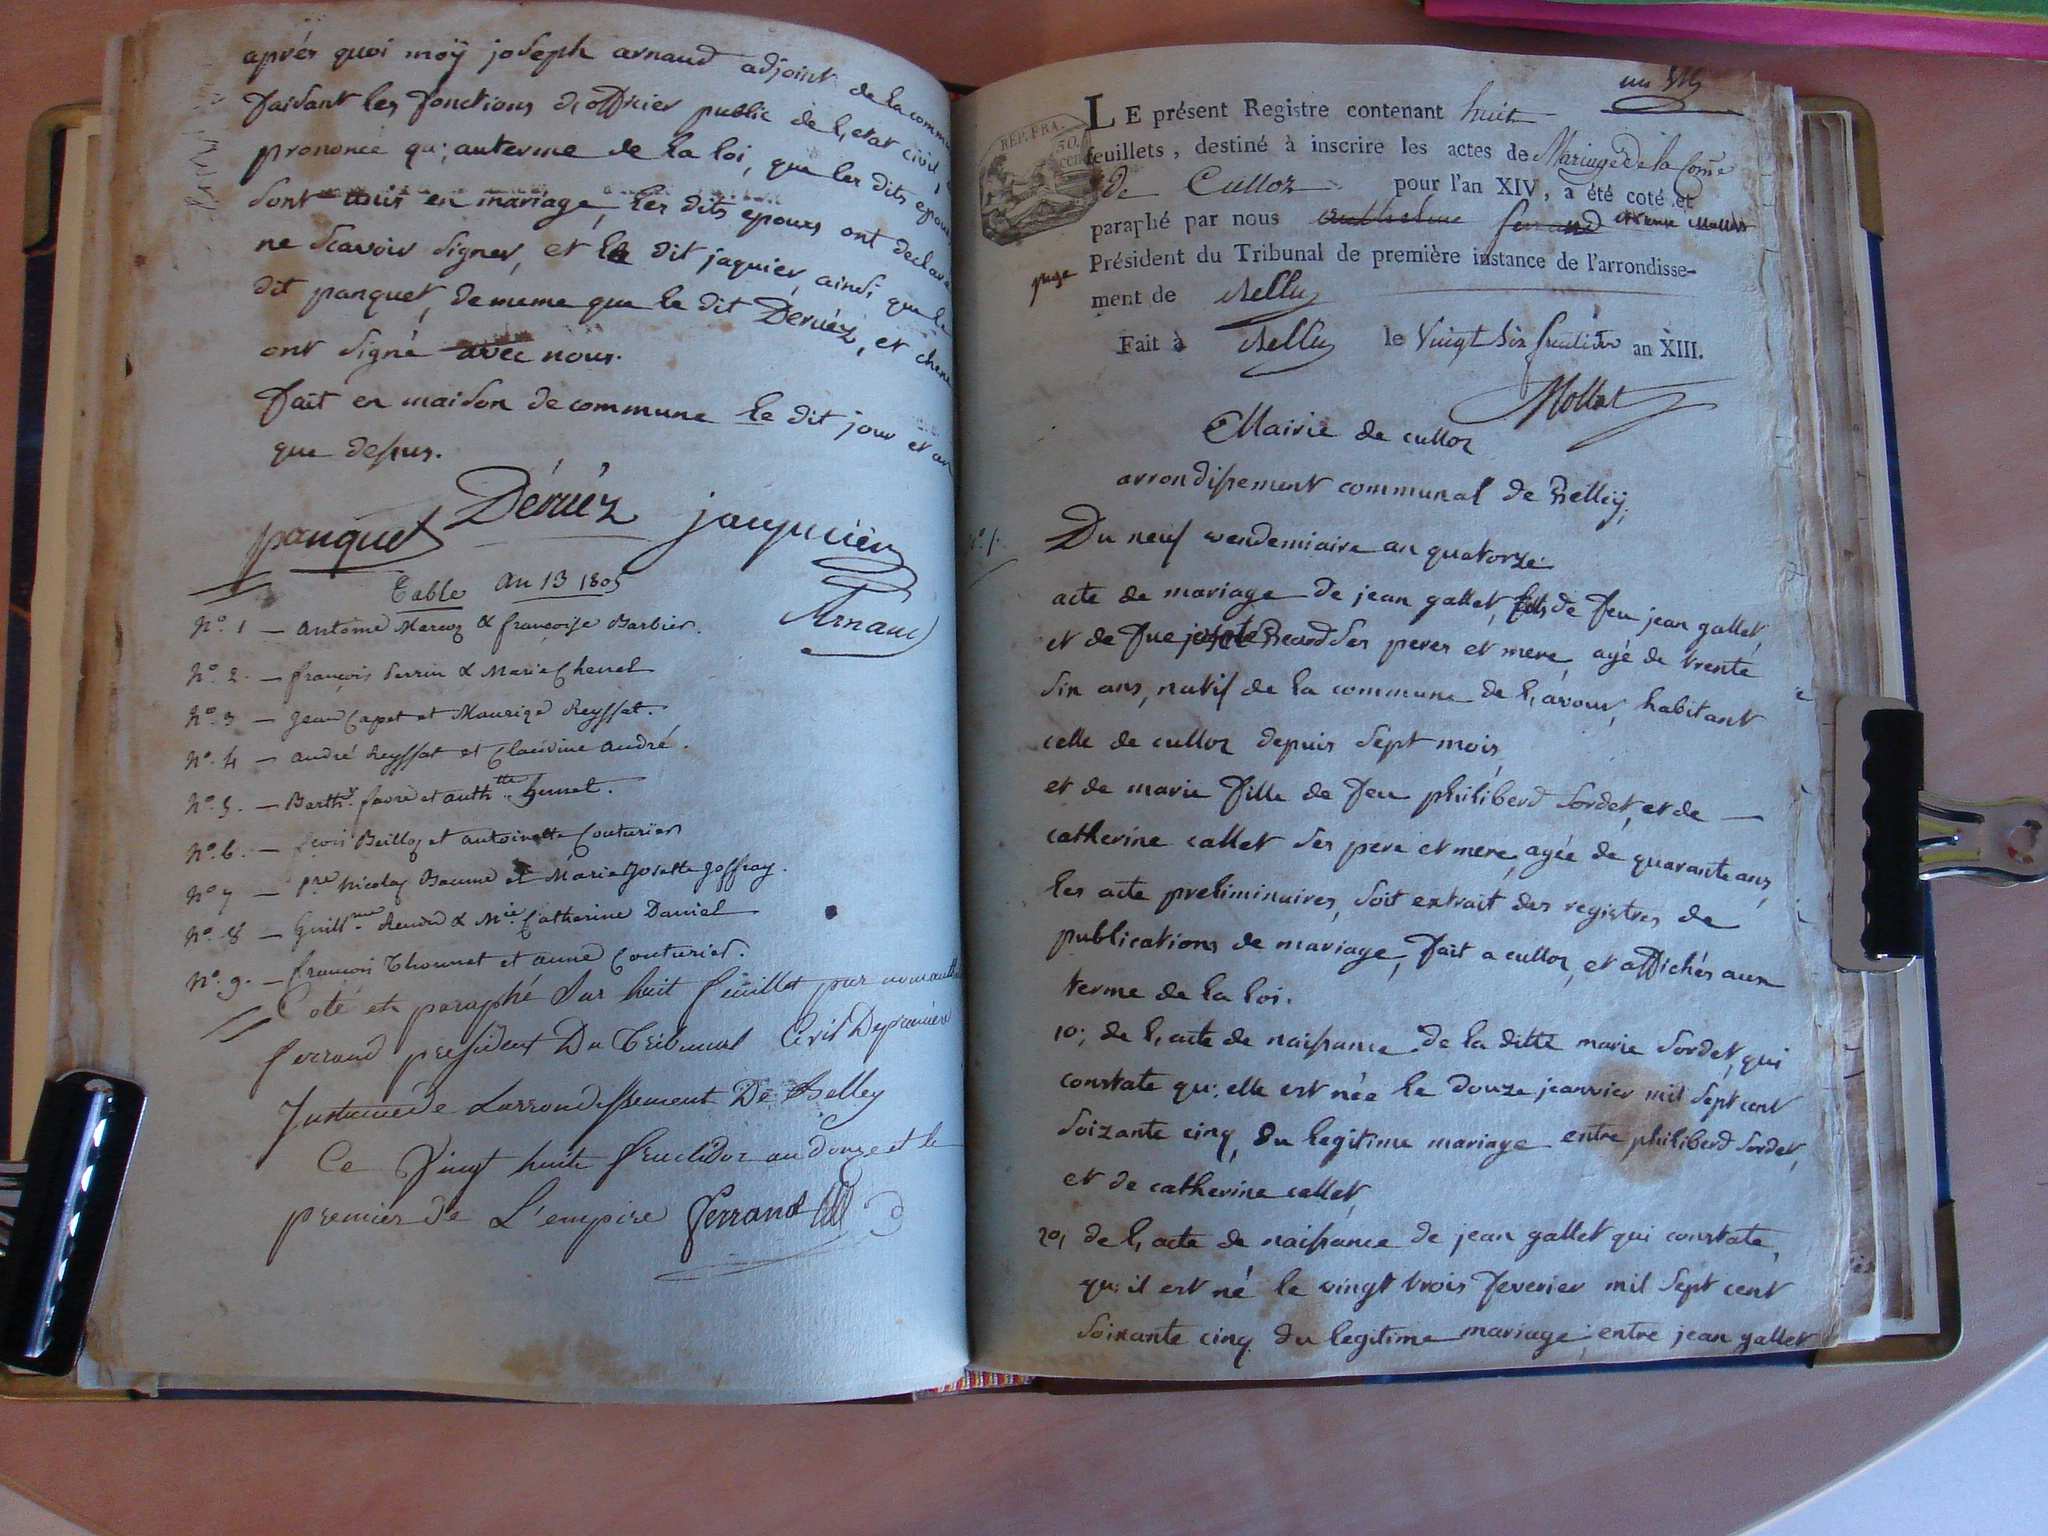 après quoi moÿ joseph arnaud adjoint de la commu
faisant les fonctions d,officier public de l,etat civil,
prononcé qu; au terme de la loi, que les dits epoux
sont unis en mariage, les dits epoux ont declaré
ne scavoir signer, et le dit jaquier, ainsi que le
dit panquet, de meme que le dit Deruéz, et chene
ont signé avec nous.
fait en maison de commune le dit jour et an
que dessus.
panquet Déruéz jacquiér
Arnaud
Table an 13 1805
N.o 1 — antoine & françoise Barbier.
N.o 2. — françois Perrin & Marie Chenel
N.o 3 — Jean Capet et Maurize Reyssat.
N.o 4 — andré Reyssat et Claudine andré.
N.o 5. — Barth.y favre et anth.tte
N.o 6. — et antoinette Couturier
N.o 7 — p.re Nicolas et Marie Josette Joffray.
N.o 8 — Guill.me & M.ie Catherine Daniel
N.o 9. — françois Thonnet et anne Couturier.
Coté et paraphé Sur huit feuillet par nous
ferrand president Du Tribunal Civil De premiere
Instance de Larrondissement De Belley
Ce Vingt huit fructidor an douze et le
premier de L'empire Ferrand
REP. FRA.
50.
cen
LE présent Registre contenant huit
feuillets, destiné à inscrire les actes de Mariage de la Come
de Culloz pour l'an XIV, a été coté et
paraphé par nous anthelme ferrand
Président du Tribunal de première instance de l'arrondisse-
ment de Belley
Fait à Belley le Vingt Six fructidor an XIII.
Mollet
Mairie de culloz
arrondissement communal de Belleÿ,
N.o 1.
Du neuf vendemiaire an quatorze
acte de mariage de jean gallet, fils de feu jean gallet,
et de fue ses peres et mere, agé de trente
six ans, natif de la commune de l,avour, habitant
celle de culloz depuis sept mois,
et de marie fille de feu philiberd sordet, et de —
catherine callet ses pere et mere, agée de quarante ans,
les acte preliminaires, soit extrait des registres de
publications de mariage, fait a culloz, et affichés aux
terme de la loi.
1o; de l,acte de naissance de la ditte marie sordet, qui
constate qu; elle est née le douze jeanvier mil sept cent
soizante cinq, du legitime mariage entre philiberd sordet,
et de catherine callet,
2o, de l,acte de naissance de jean gallet qui constate,
qu; il est né le vingt trois feverier mil sept cent
soixante cinq du legitime mariage; entre jean gallet